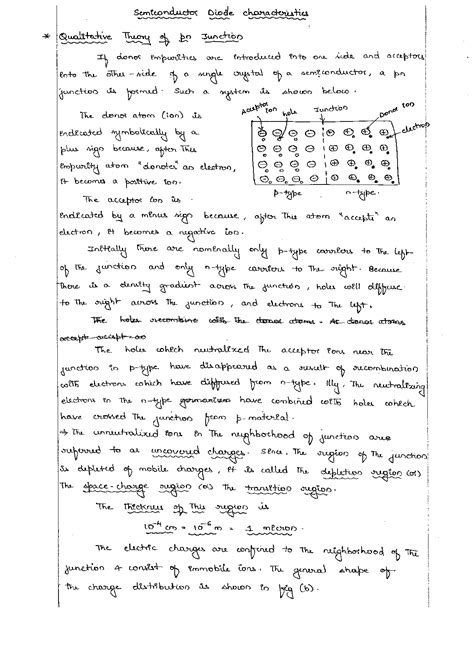 Semiconductor Diode characteristics
* Qualitative Theory of pn Junction
If donor impurities are introduced into one side and acceptors
into the other-side of a single crystal of a semiconductor, a pn
junction is formed. Such a system is shown below.
The donor atom (ion) is
indicated symbolically by a
plus sign because, after this
impurity atom "donates" an electron,
it becomes a positive ion.
Acceptor ion
hole
Junction
Donor ion
electron
p-type
n-type.
The acceptor ion is
indicated by a minus sign because, after this atom "accepts" an
electron, it becomes a negative ion.
Initially there are nominally only p-type carriers to the left
of the junction and only n-type carriers to the right. Because
there is a density gradient across the junction, holes will diffuse
to the right across the junction, and electrons to the left.
The holes recombine with the donor atoms. As donor atoms
The holes which neutralized the acceptor ions near the
junction in p-type have disappeared as a result of recombination
with electrons which have diffused from n-type. Illy, the neutralizing
electrons in the n-type germanium have combined with holes which
have crossed the junction from p-material.
→ The unneutralized ions in the neighborhood of junction are
referred to as uncovered charges. Since, the region of the junction
is depleted of mobile charges, it is called the depletion region (or)
The space-charge region (or) the transition region.
The thickness of this region is
10⁻⁴ cm = 10⁻⁶ m = 1 micron.
The electric charges are confined to the neighborhood of the
junction & consist of immobile ions. The general shape of
the charge distribution is shown in fig (b).